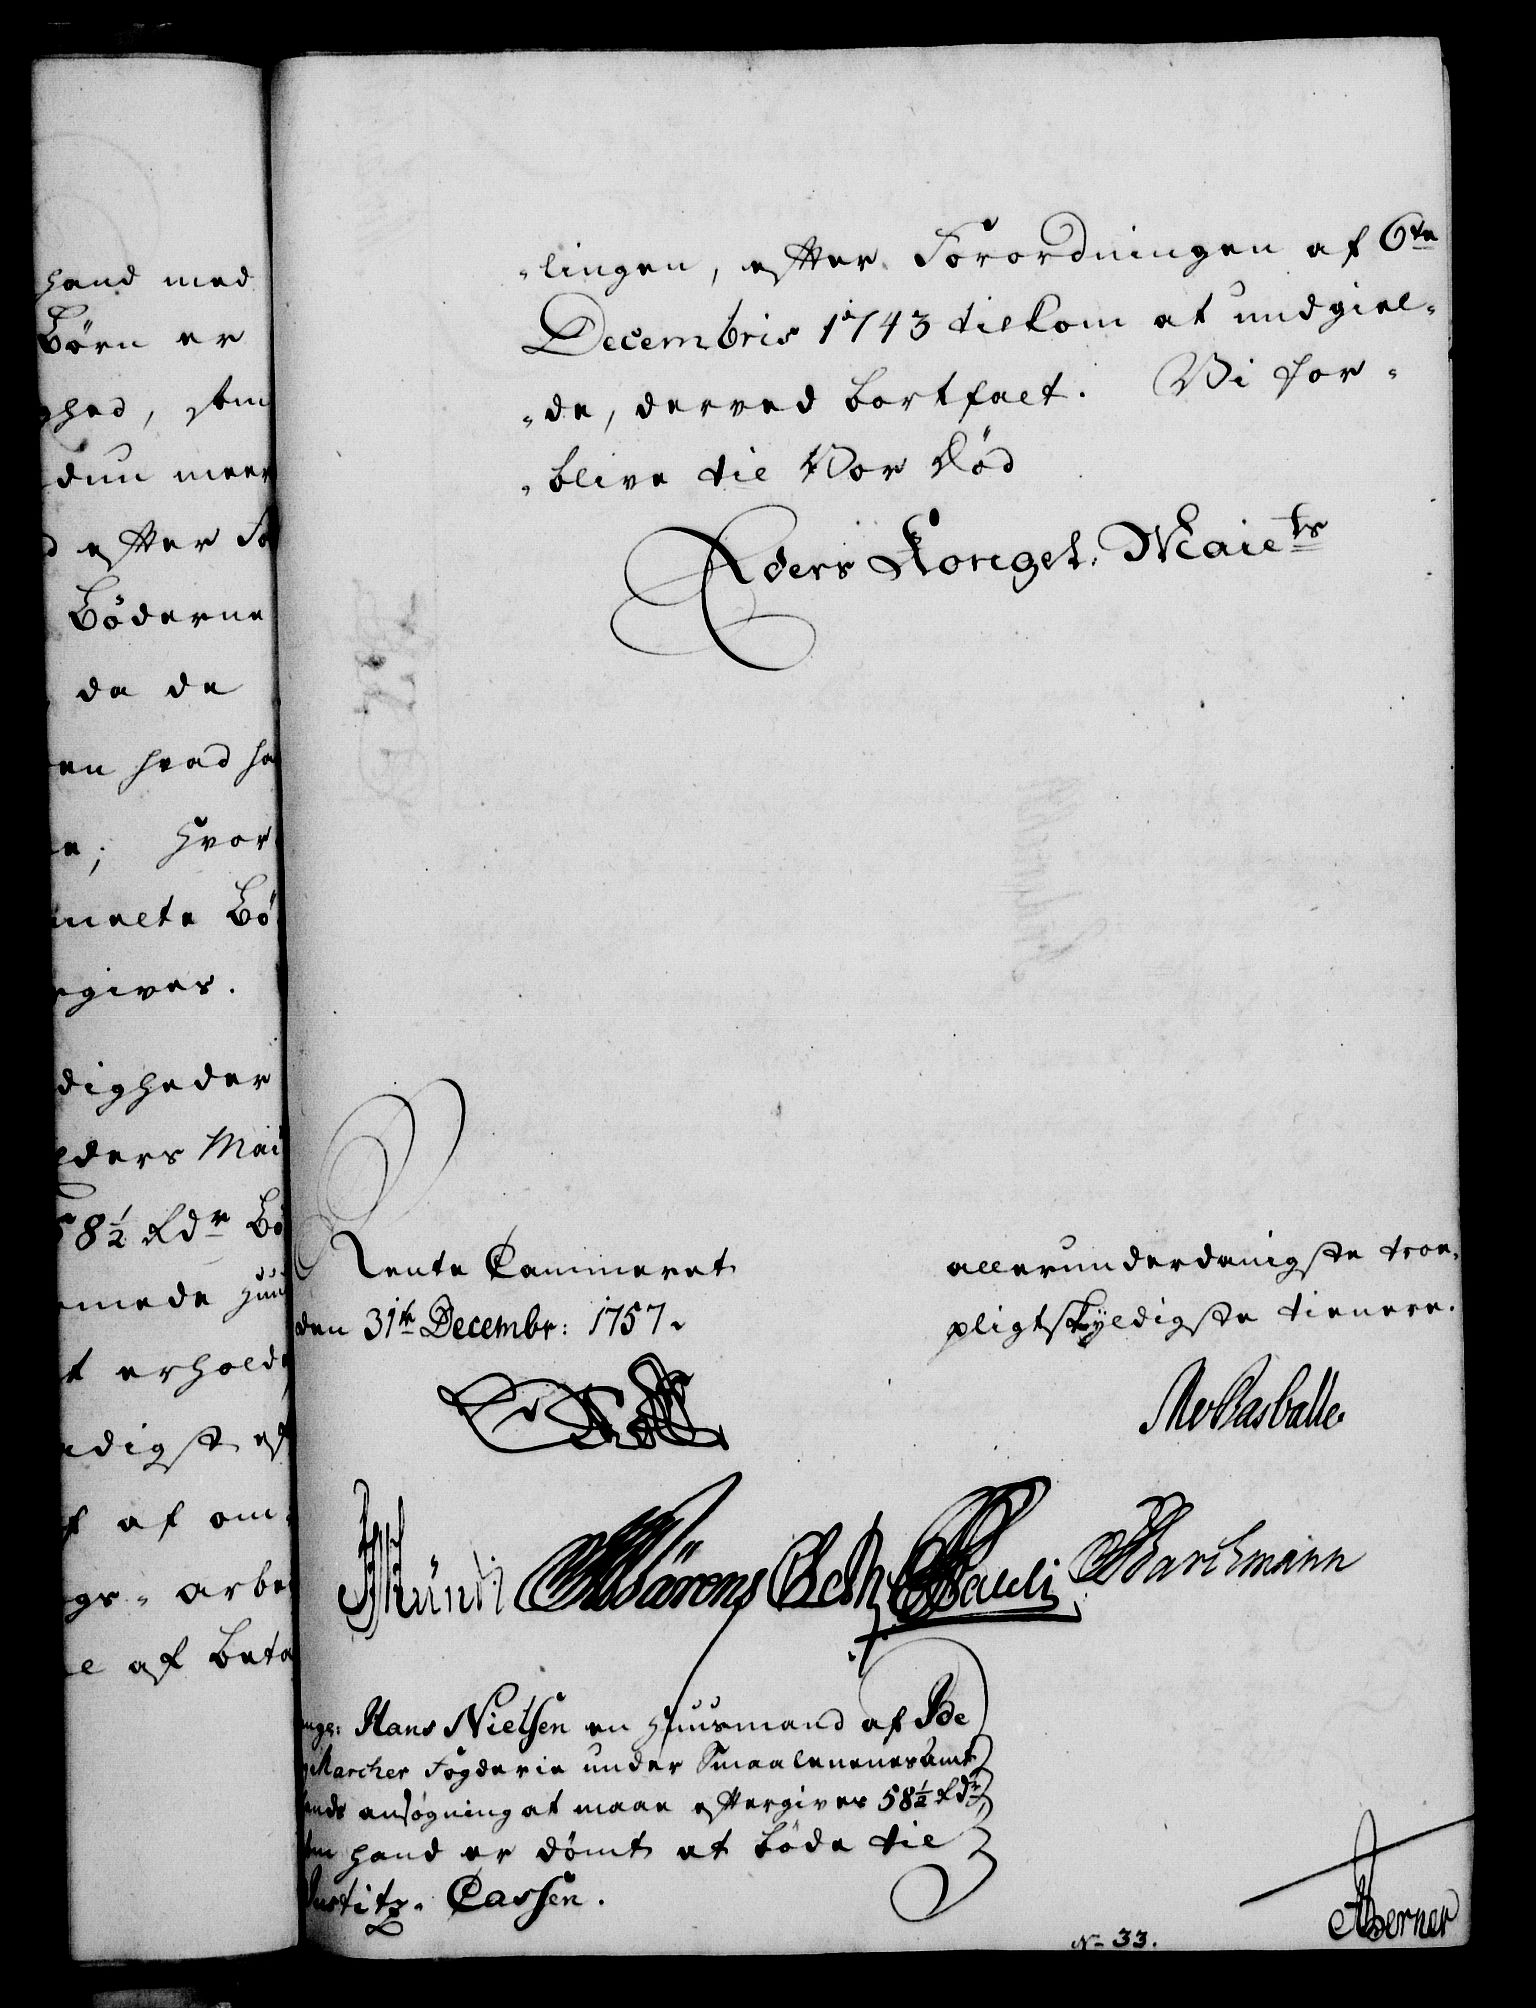 hand med
Börn er
ghed, som
dun meer
d efter Fo
Böderne
da de
en hvad ha
e; hvor
melte Bö
rgives.
digheder
eders Mai
58½ Rdr Bö
mede
t erholde
adigst ef
f af om
gs-arbe
e af beta
-lingen, efter Forordningen af 6te
Decembris 1743 tilkom at undgiel-
-de, derved bortfalt. Vi for-
-blive til Vor Död
Eders Kongel. Maiets
Rente Cammeret
den 31te Decembr: 1757.
allerunderdanigste troe-
pligtskyldigste tienere.
Pauli Barchmann
ang: Hans Nielsen en Huusmand af Ide
Marcher Fogderie under Smaalenenes Amt
ands ansøgning at maae eftergives 58½ Rdr
som hand er dömt at böde til
Justitz-Cassen.
JBerner
No 33.